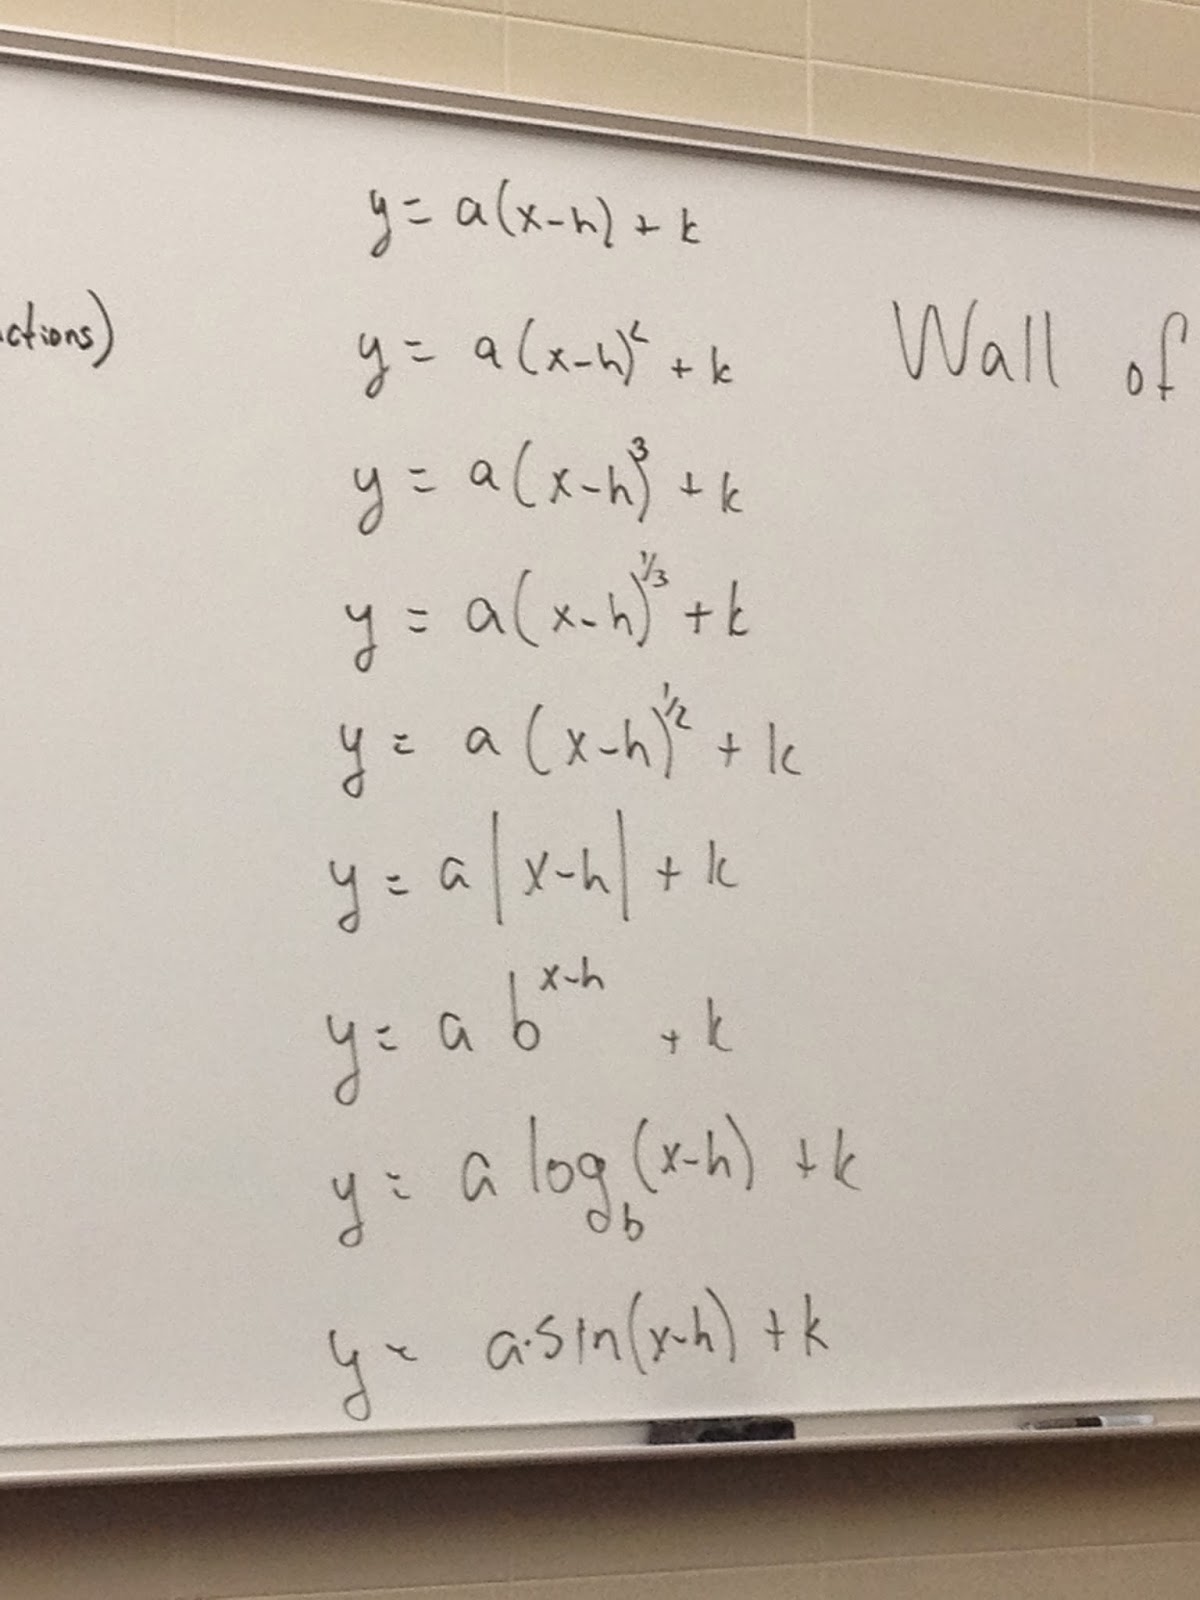 y = a(x-h) + k
ctions)
y = a(x-h)² + k
Wall of
y = a(x-h)³ + k
y = a(x-h)^1/3 + k
y = a(x-h)^1/2 + k
y = a|x-h| + k
y = a b^x-h + k
y = a log_b(x-h) + k
y = a·sin(x-h) + k